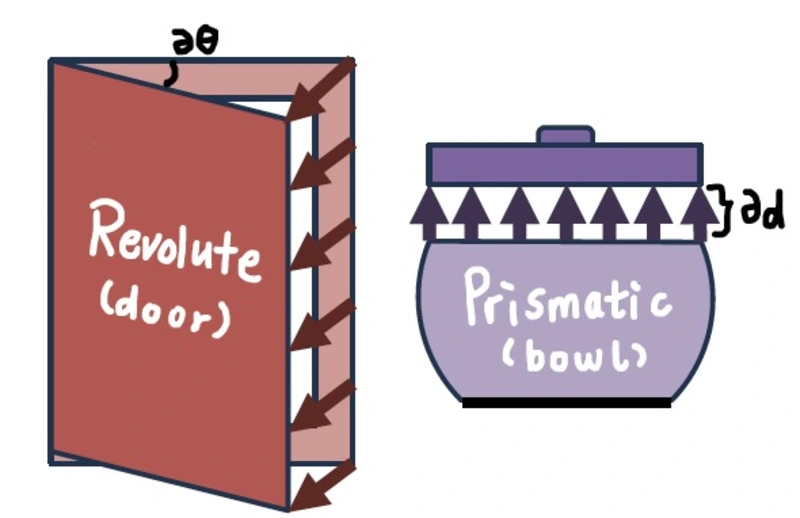 ∂θ
Revolute
(door)
Prismatic
(bowl)
∂d